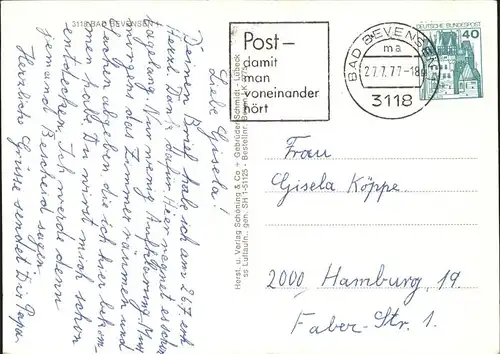 3118 BAD BEVENSEN
Liebe Gisela!
Deinen Brief hab ich am 26.7. erh
Herzl. Dank dafür. Hier regnet es schon
tagelang. Nur wenig Aufklärung. Muß
morgens das Zimmer räumen und
Sachen abgeben die ich hier bekom-
men habe. Du wirst mich schon
entdecken. Ich werde denn
jemand Bescheid sagen.
Herzliche Grüsse sendet Dir Papa.
Herst. u. Verlag Schöning & Co + Gebrüder Schmidt - Lübeck
ss Luftaufn.: gen. SH 1-51125 - Bestellnr.
Post-
damit
man
voneinander
hört
BAD BEVENSEN
ma
27.7.77-18
3118
DEUTSCHE BUNDESPOST
40
Frau
Gisela Köppe
2000 Hamburg 19
Faber-Str. 1